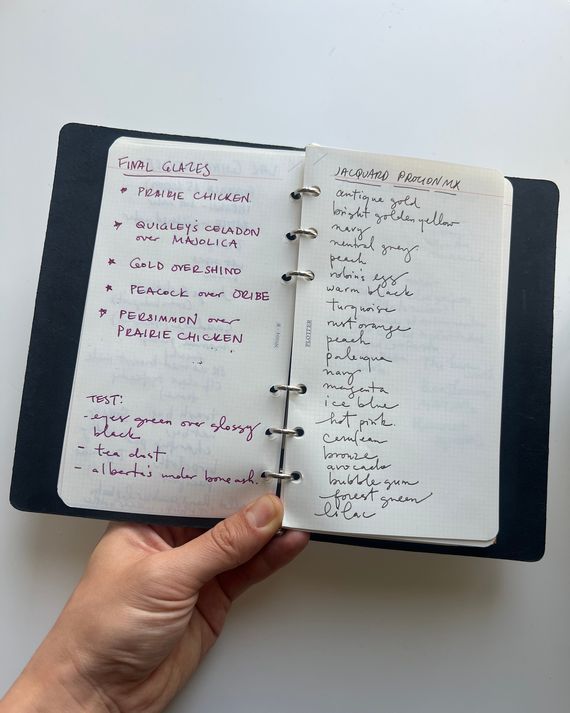 FINAL GLAZES
* PRAIRIE CHICKEN
* QUIGLEY'S CELADON
over MAJOLICA
* GOLD OVER SHINO
* PEACOCK over ORIBE
* PERSIMMON over
PRAIRIE CHICKEN
TEST:
- eyes green over glossy
black
- tea dust
- alberta's under bone ash.
PLOTTER
JACQUARD PROCION MX
antique gold
bright golden yellow
navy
neutral grey
peach
robin's egg
warm black
turquoise
rust orange
peach
pale aqua
navy
magenta
ice blue
hot pink.
cerulean
bronze
avocado
bubble gum
forest green
lilac